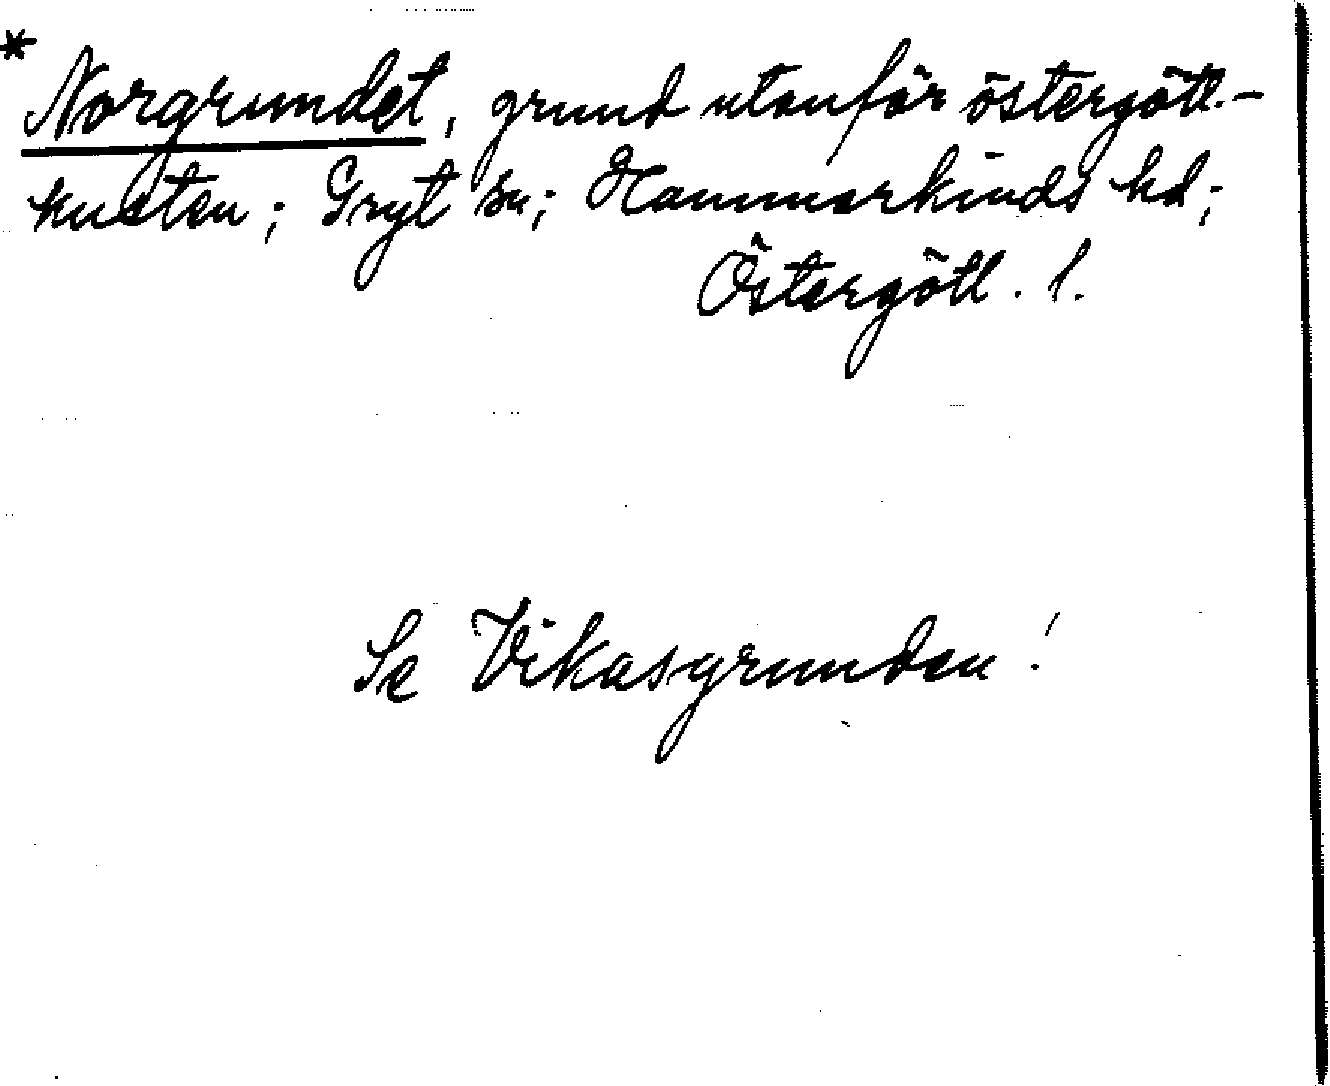 * Norgrundet, grund utanför östergötl.-
kusten; Gryt sn; Hammarkinds hd;
Östergötl. l.
Se Vikasgrunden!